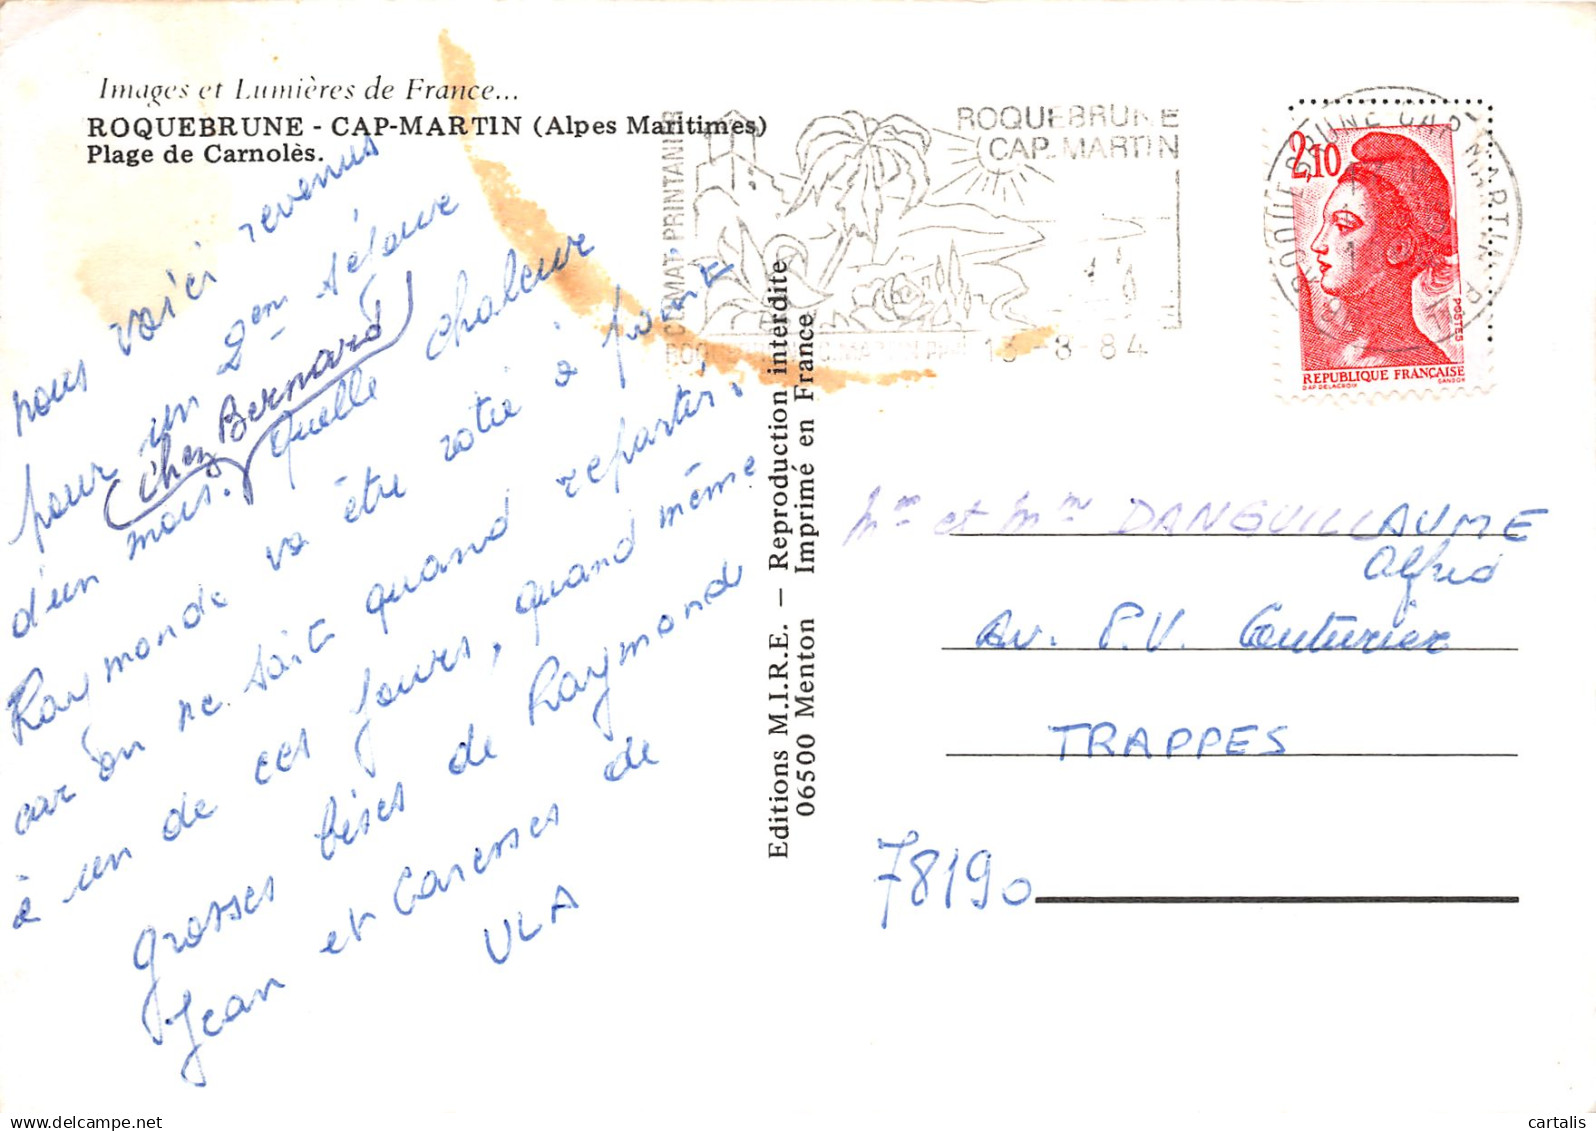 Images et Lumières de France...
ROQUEBRUNE - CAP-MARTIN (Alpes Maritimes)
Plage de Carnolès.
nous voici revenus
pour un 2em séjour
(chez Bernard)
d'un mois. Quelle chaleur
Raymonde va être rotie à point
car on ne sait quand repartir.
à un de ces jours, quand même
grosses bises de Raymonde
Jean et Caresses de
ULA
Editions M.I.R.E. — Reproduction interdite
06500 Menton Imprimé en France
CLIMAT PRINTANIER
ROQUEBRUNE
CAP-MARTIN
13-8-84
ROQUEBRUNE CAP MARTIN
2,10
POSTES
REPUBLIQUE FRANÇAISE
DAP. DELACROIX GANDON
Mr et Mme DANGUILLAUME
Alfred
Av. P.V. Couturier
TRAPPES
78190
cartalis